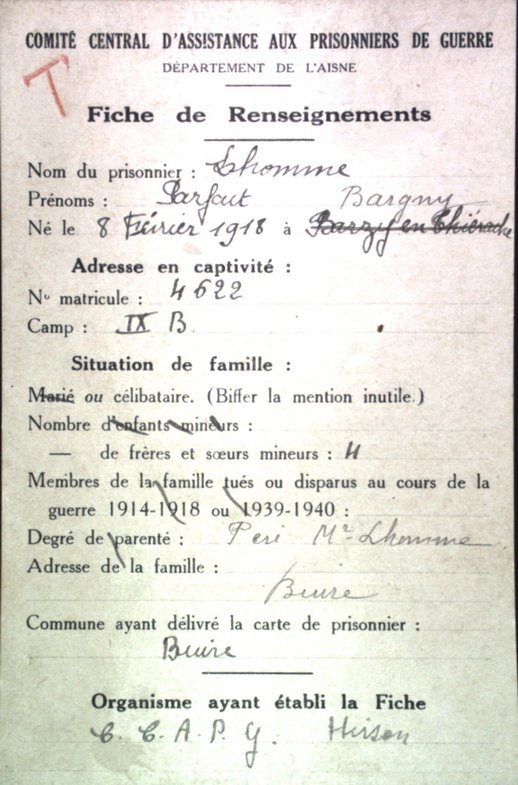 COMITÉ CENTRAL D'ASSISTANCE AUX PRISONNIERS DE GUERRE
DÉPARTEMENT DE L'AISNE
T
Fiche de Renseignements
Nom du prisonnier : Lhomme
Prénoms : Parfait Bargny
Né le 8 Février 1918 à Barzy en Thiérache
Adresse en captivité :
No matricule : 4622
Camp : IX B
Situation de famille :
Marié ou célibataire. (Biffer la mention inutile.)
Nombre d'enfants mineurs :
— de frères et sœurs mineurs : 4
Membres de la famille tués ou disparus au cours de la
guerre 1914-1918 ou 1939-1940 :
Degré de parenté : Père Mr Lhomme
Adresse de la famille :
Buire
Commune ayant délivré la carte de prisonnier :
Buire
Organisme ayant établi la Fiche
C. C. A. P. G. Hirson